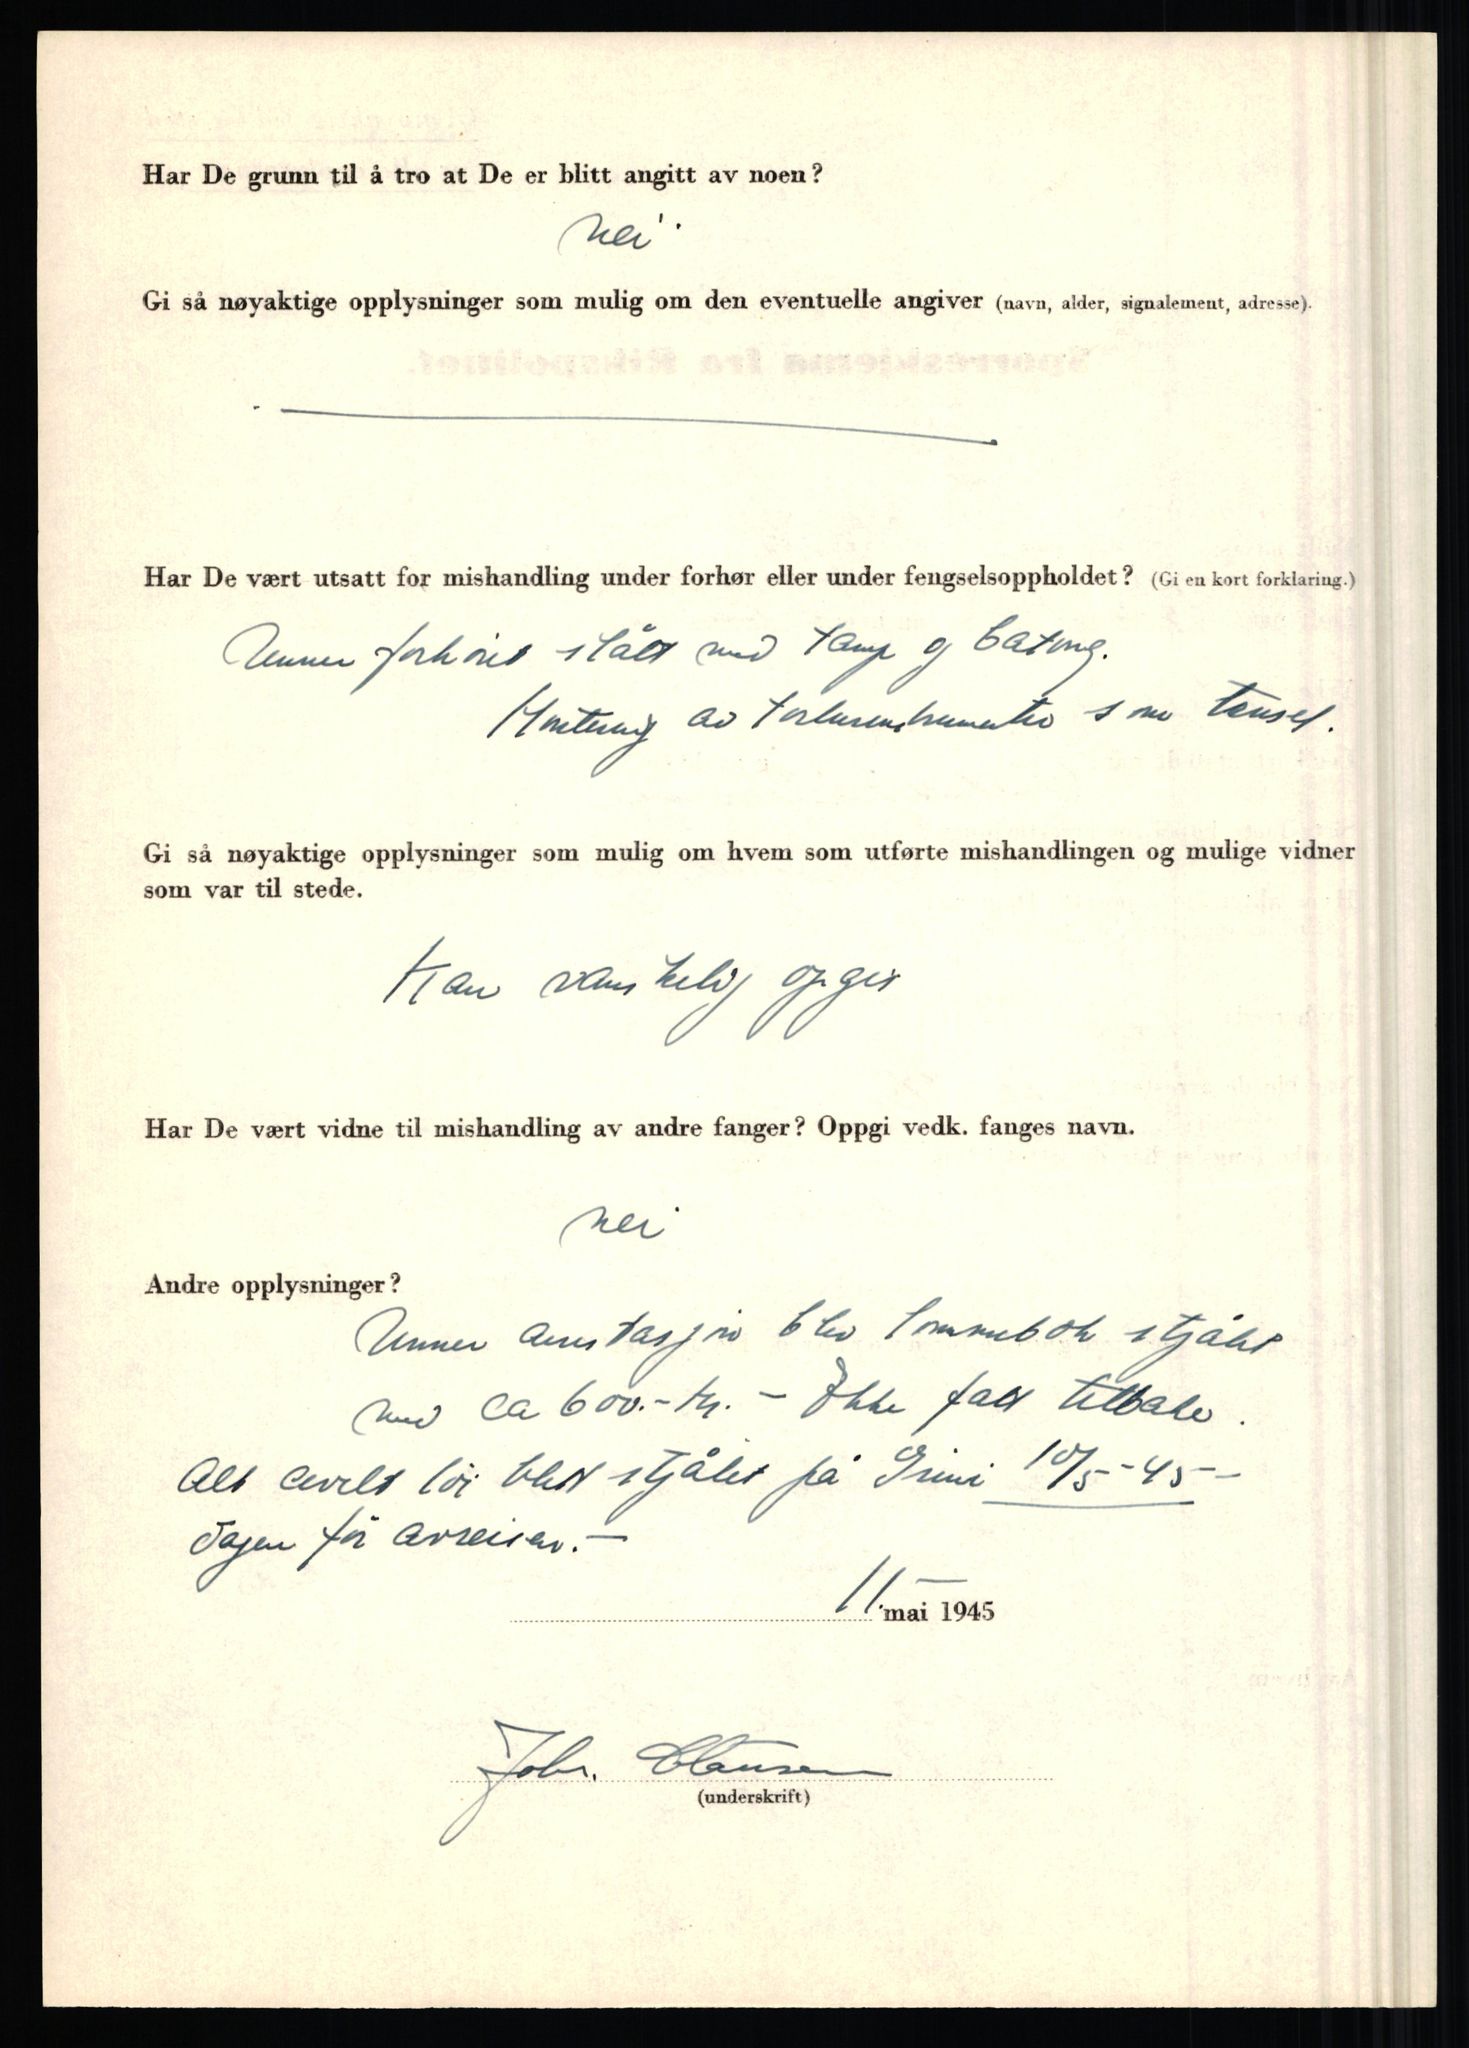 Har De grunn til å tro at De er blitt angitt av noen?
Nei
Gi så nøyaktige opplysninger som mulig om den eventuelle angiver (navn, alder, signalement, adresse).
Har De vært utsatt for mishandling under forhør eller under fengselsoppholdet? (Gi en kort forklaring.)
Unner forhöret slått med tamp og batong.
Henting av torturinstrumenter som trusel.
Gi så nøyaktige opplysninger som mulig om hvem som utførte mishandlingen og mulige vidner
som var til stede.
Kan vanskelig opgis
Har De vært vidne til mishandling av andre fanger? Oppgi vedk. fanges navn.
Nei
Andre opplysninger?
Unner arrestasjon blev lommebok stjålet
med ca 600.- kr. - Ikke fått tilbake.
Alt civilt töi blitt stjålet på Grini 10/5-45-
dagen för avreisen.-
11. mai 1945
Johs. Clausen
(underskrift)